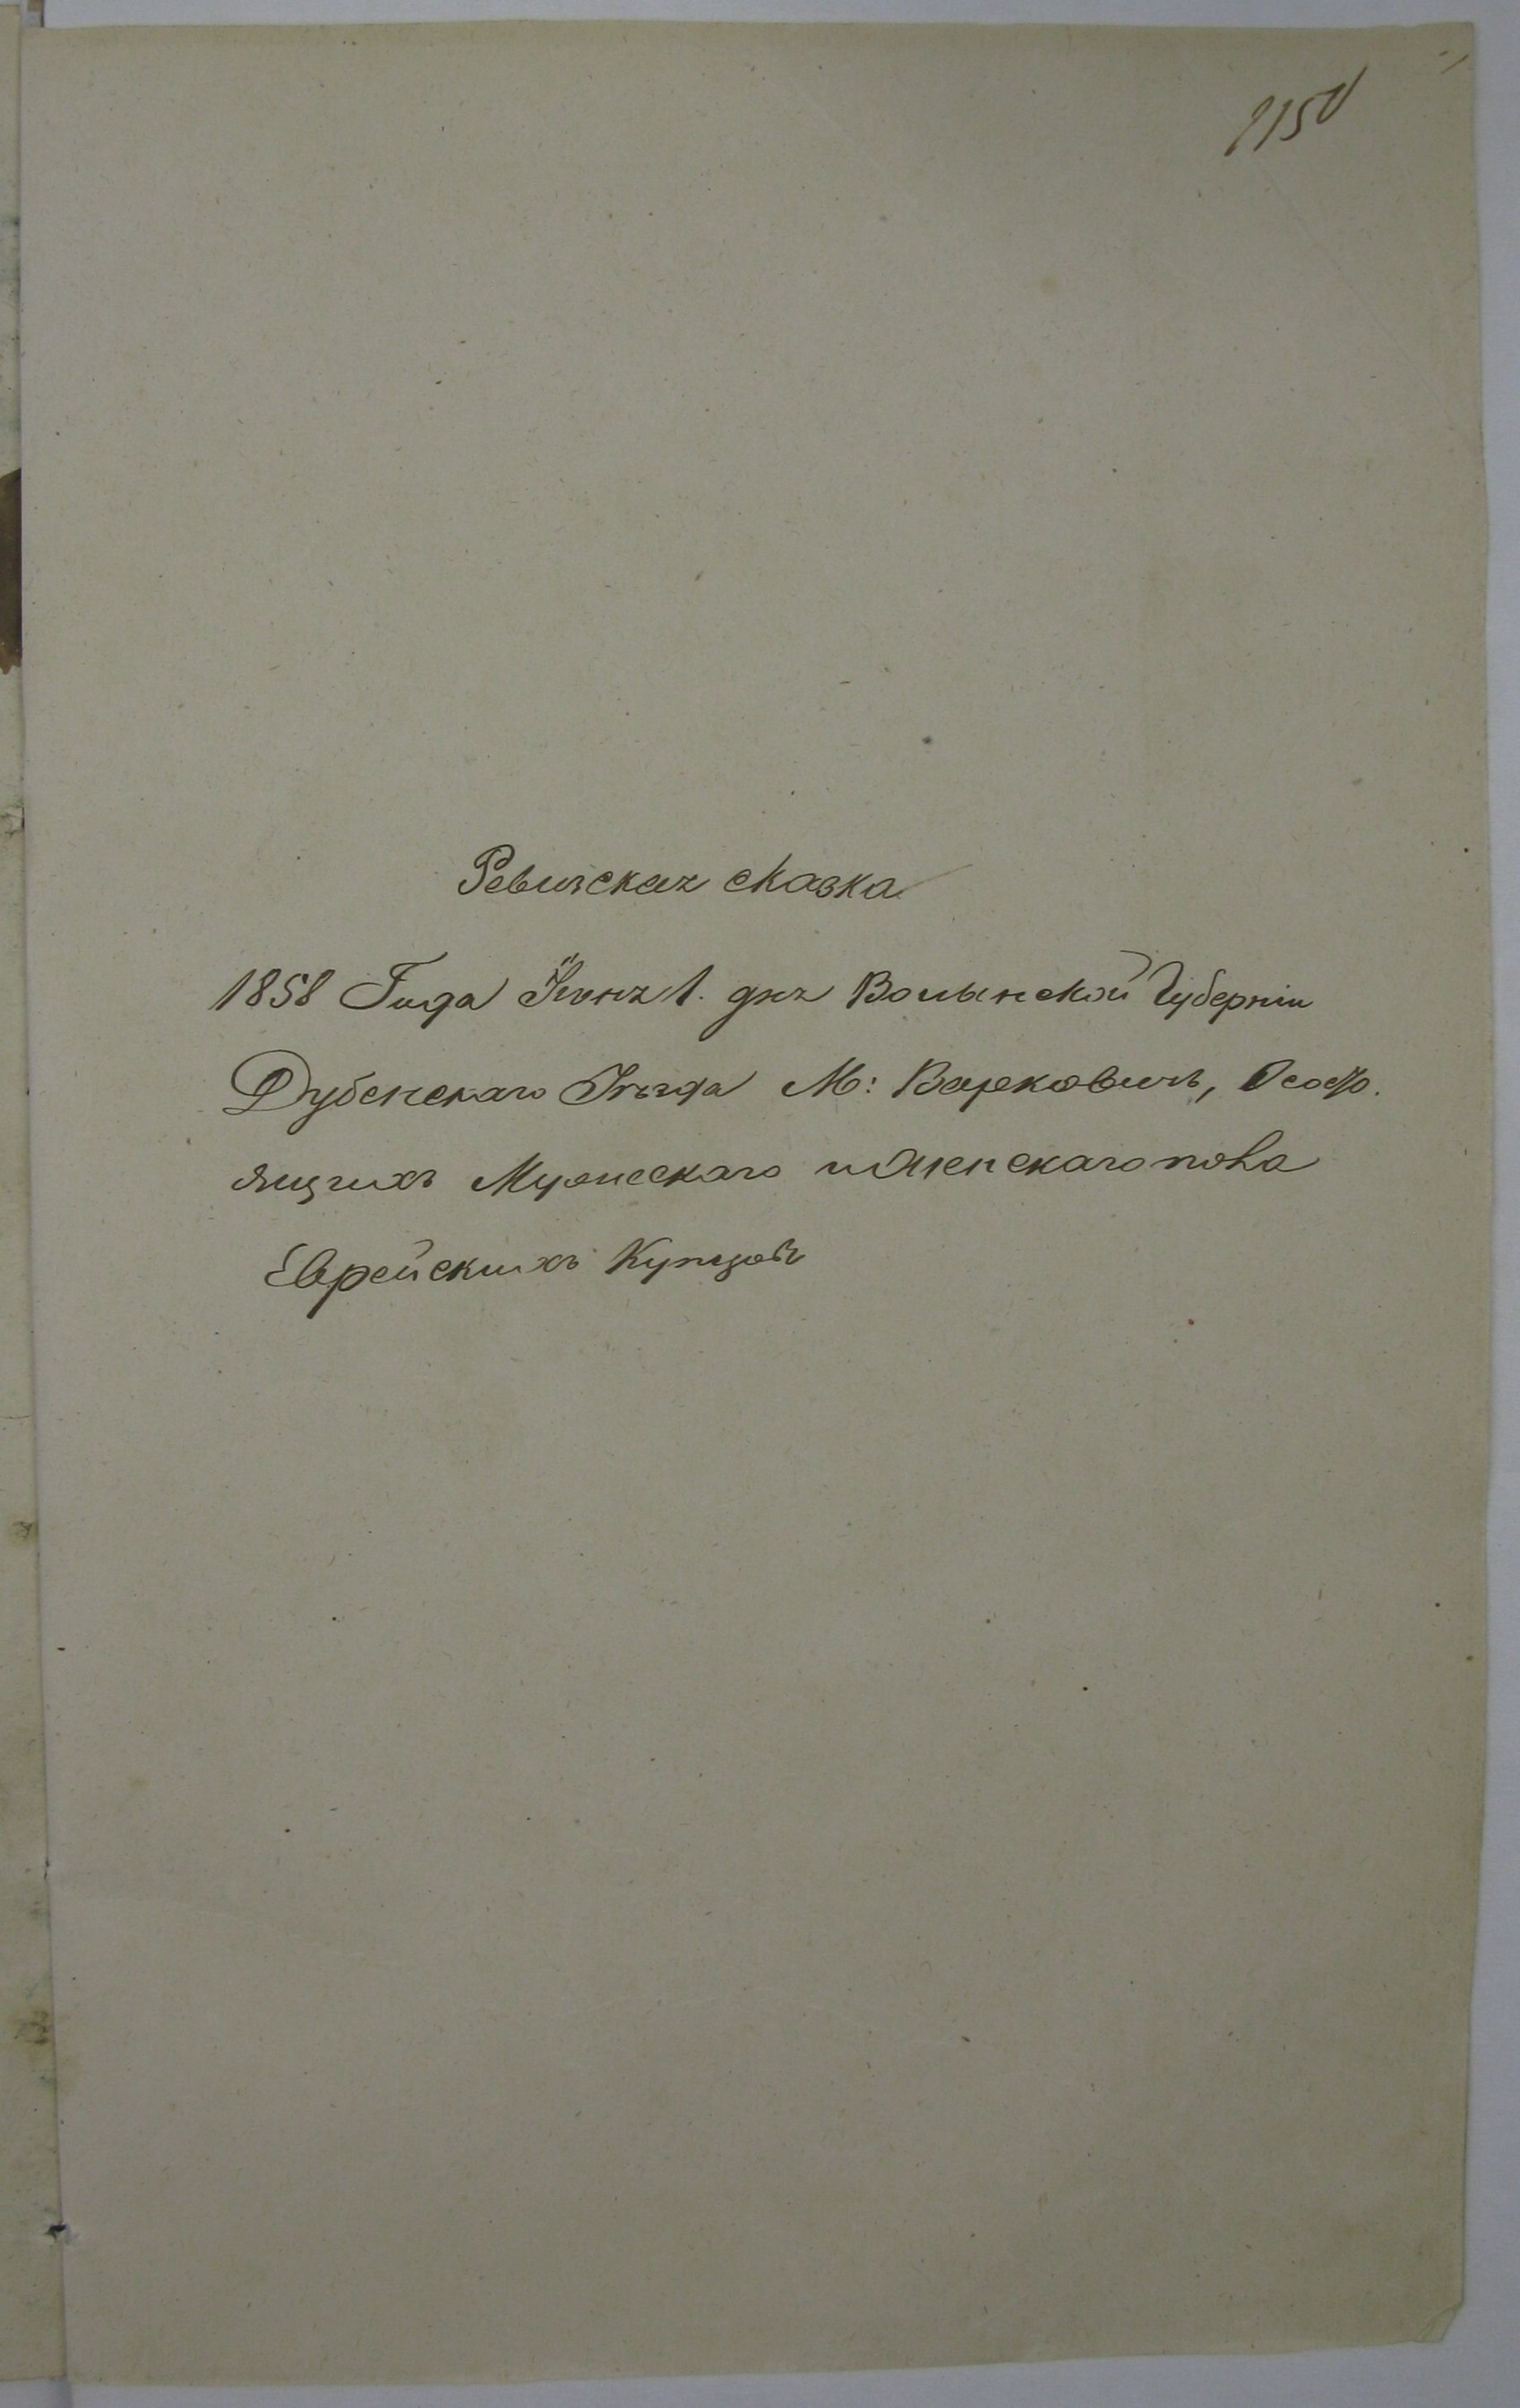 Ревизская сказка
1858 Года Іюня 1. дня Волынской Губерніи
Дубенскаго Уѣзда М: Варковичъ, О состо
ящихъ Мужескаго и Женскаго пола
Еврейскихъ Купцовъ